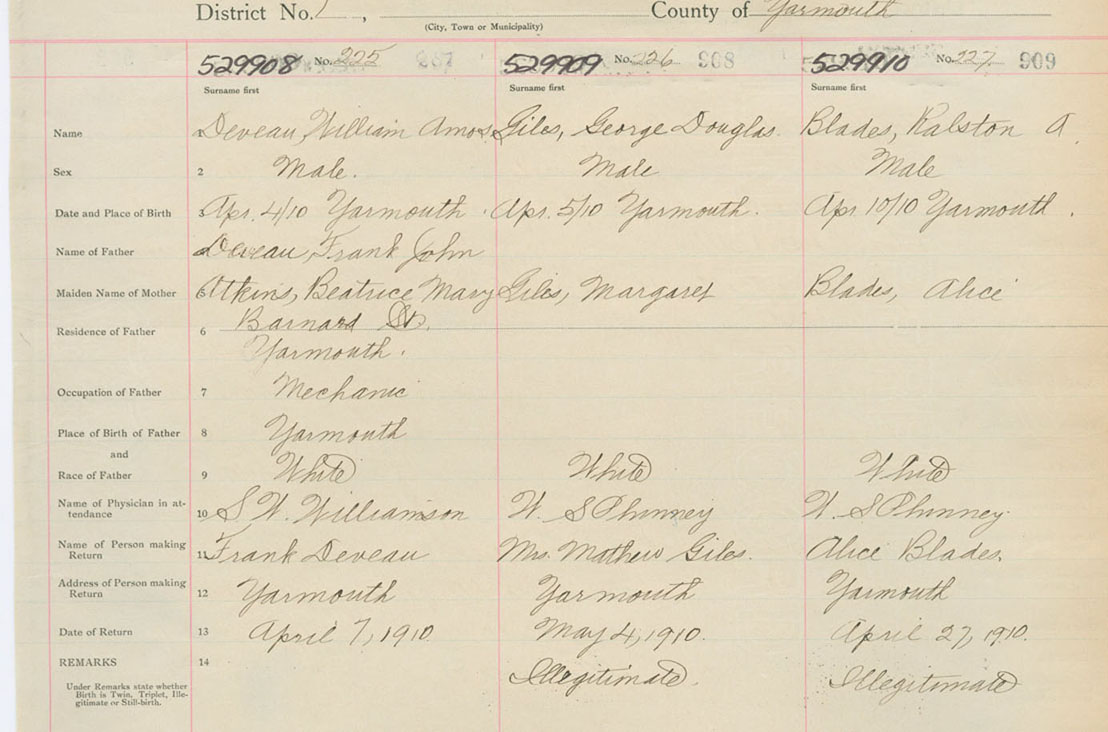 District No. 1 , County of Yarmouth
(City, Town or Municipality)
529908 No. 225 529909 No. 226 908 529910 No. 227 909
Surname first Surname first Surname first
Name 1 Deveau, William Amos Giles, George Douglas. Blades, Ralston A
Sex 2 Male. Male Male
Date and Place of Birth Apr. 4/10 Yarmouth. Apr. 5/10 Yarmouth. Apr 10/10 Yarmouth.
Name of Father Deveau, Frank John
Maiden Name of Mother 5 Atkins, Beatrice Mary Giles, Margaret Blades, Alice
Residence of Father 6 Barnard St.
Yarmouth.
Occupation of Father 7 Mechanic
Place of Birth of Father 8 Yarmouth
and
Race of Father 9 White White White
Name of Physician in at-
tendance 10 S. W. Williamson W. S Phinney W. S Phinney.
Name of Person making
Return 11 Frank Deveau Mrs. Mathew Giles. Alice Blades.
Address of Person making
Return 12 Yarmouth Yarmouth Yarmouth
Date of Return 13 April 7, 1910. May 4, 1910. April 27, 1910.
REMARKS 14 Illegitimate. Illegitimate
Under Remarks state whether
Birth is Twin, Triplet, Ille-
gitimate or Still-birth.